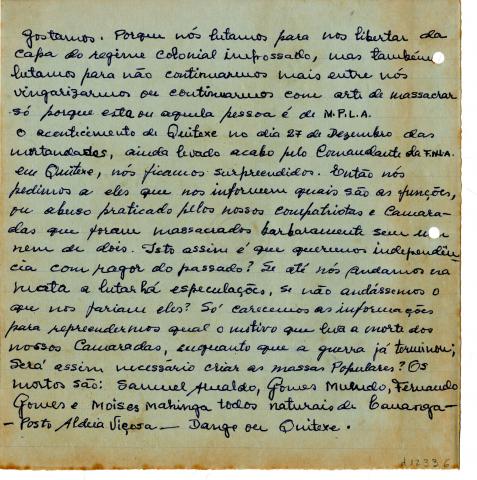 gostamos. Porque nós lutamos para nos libertar da
capa do regime colonial impossado, mas também
lutamos para não continuarmos mais entre nós
vingarizarmos ou continuarmos com arte de massacrar
só porque esta ou aquela pessoa é de M.P.L.A.
O aconticimento de Quitexe no dia 27 de Dezembro das
mortandades, ainda levado acabo pelo Comandante da F.N.L.A.
em Quitexe, nós ficamos surpreendidos. Então nós
pedimos a eles que nos informem quais são as funções,
ou abuso praticado pelos nossos compatriotas e Camara-
das que foram massacrados barbaramente sem um
nem de dois. Isto assim é que queremos independên
cia com pagor do passado? Se até nós andamos na
mata a lutar há especulações, se não andássemos o
que nos fariam eles? Só carecemos as informações
para repreendermos qual o motivo que leva a morte dos
nossos Camaradas, enquanto que a guerra já terminou;
Será assim necessário criar as massas Populares? Os
mortos são: Samuel Arnaldo, Gomes Mukudo, Fernando
Gomes e Moises Mahinga todos naturais de Cauanga-
- Posto Aldeia Viçosa - Dange ou Quitexe.